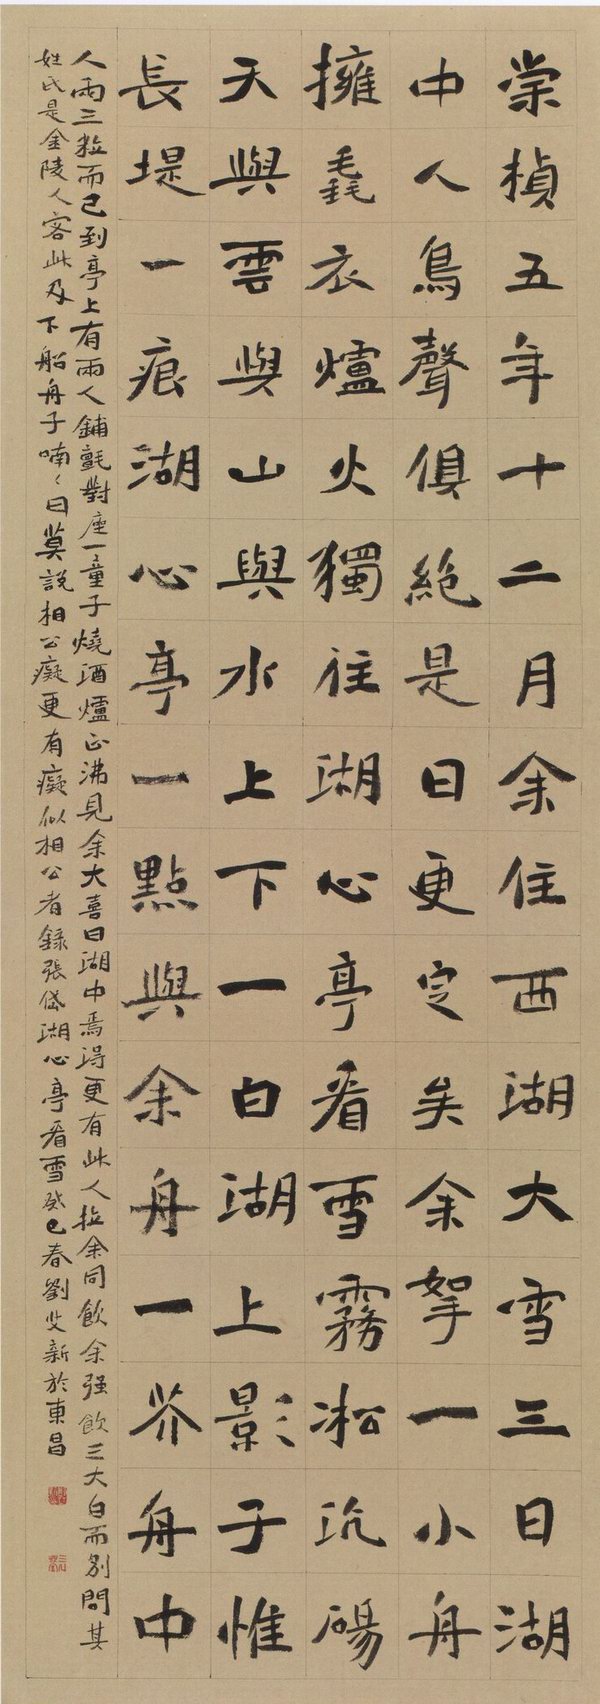 崇楨五年十二月余住西湖大雪三日湖
中人鳥聲俱絶是日更定矣余拏一小舟
擁毳衣爐火獨往湖心亭看雪霧凇沆碭
天與雲與山與水上下一白湖上影子惟
長堤一痕湖心亭一點與余舟一芥舟中
人兩三粒而已到亭上有兩人鋪氈對座一童子燒酒爐正沸見余大喜曰湖中焉得更有此人拉余同飲余强飲三大白而别問其
姓氏是金陵人客此及下船舟子喃〻曰莫說相公癡更有癡似相公者錄張岱湖心亭看雪癸巳春劉文新於東昌